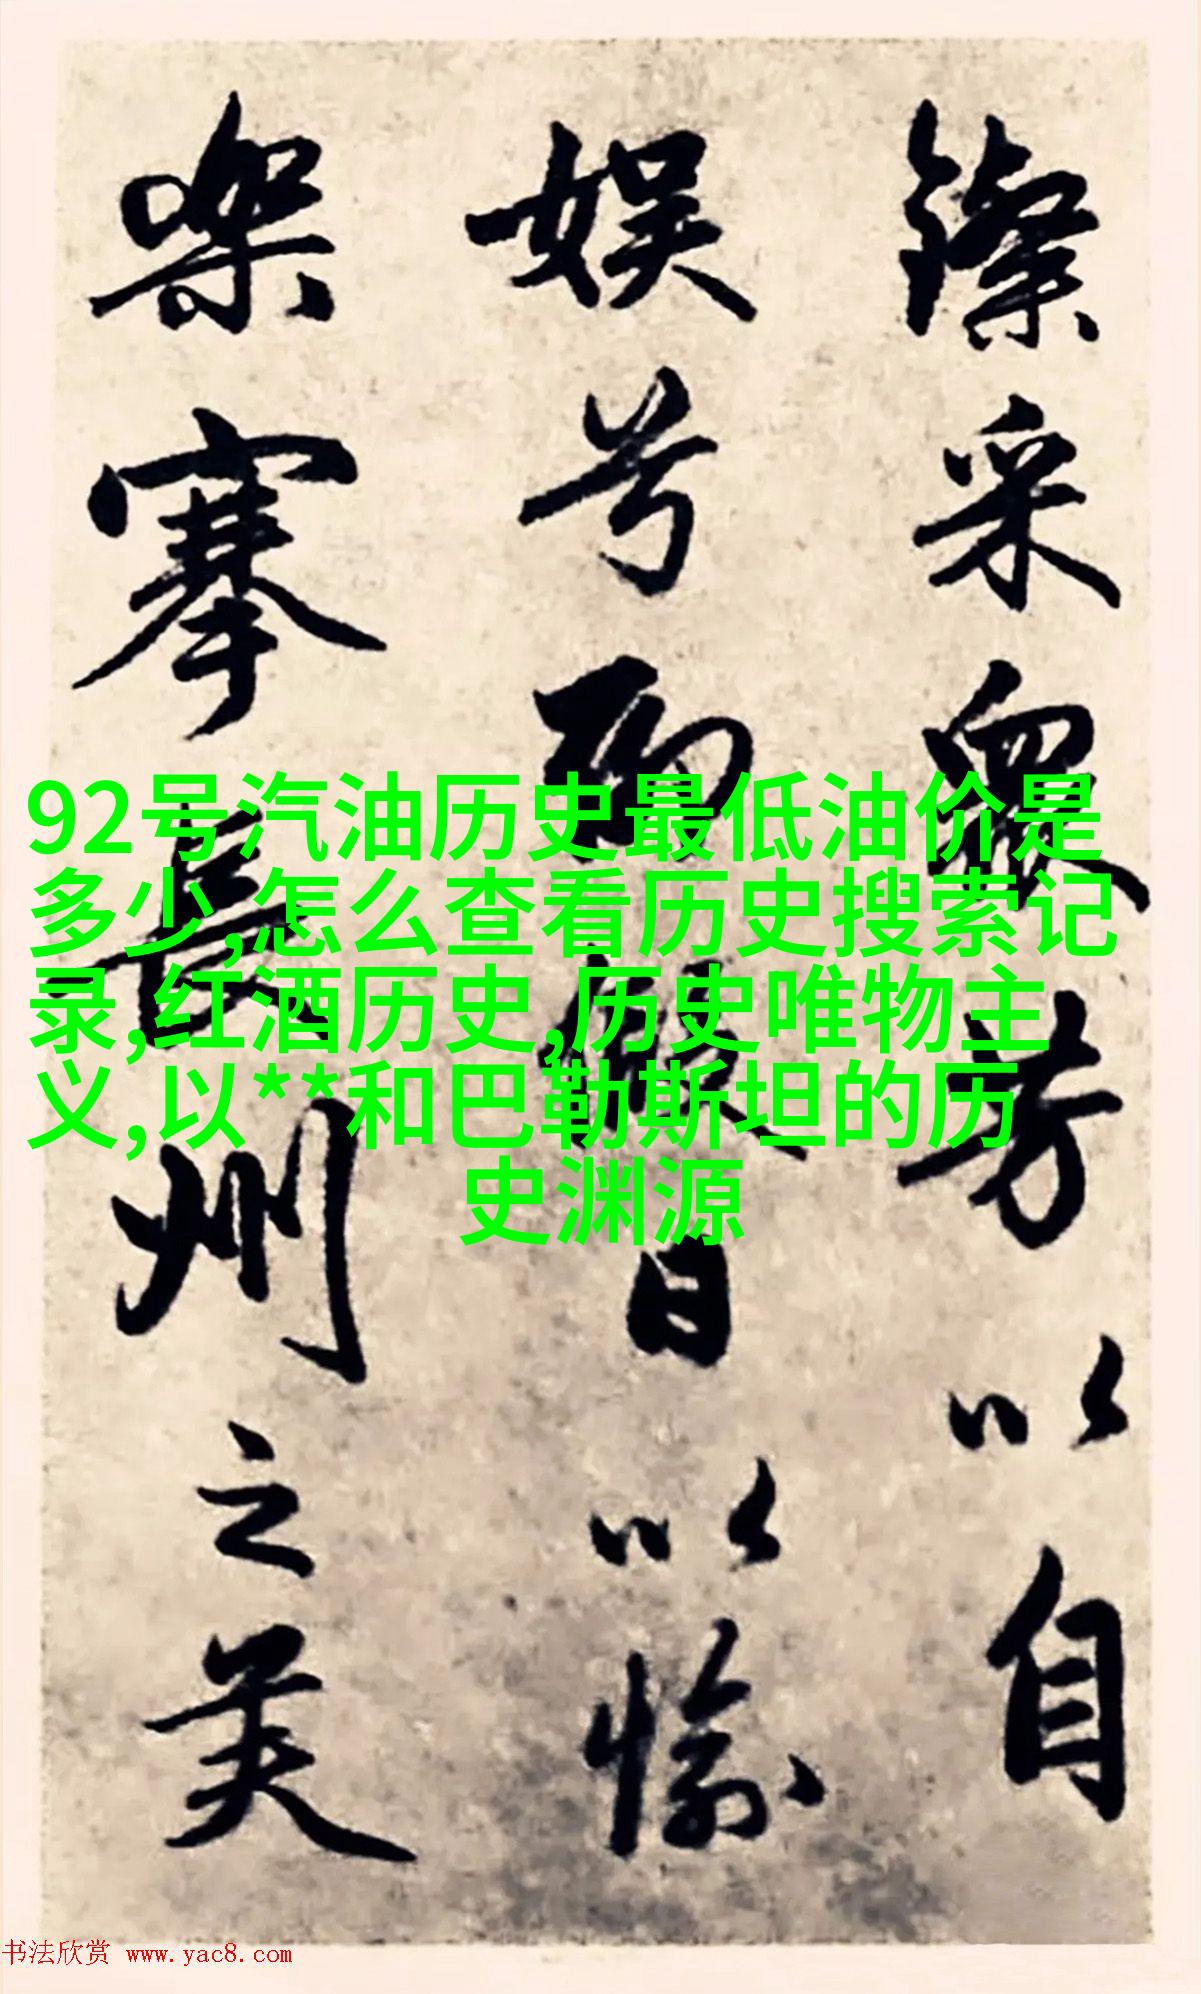 鑗采众芳以自
娱兮而假日以愉
乐搴长州之美
92号汽油历史最低油价是
多少,怎么查看历史搜索记
录,红酒历史,历史唯物主
义,以**和巴勒斯坦的历
史渊源
书法欣赏 www.yac8.com